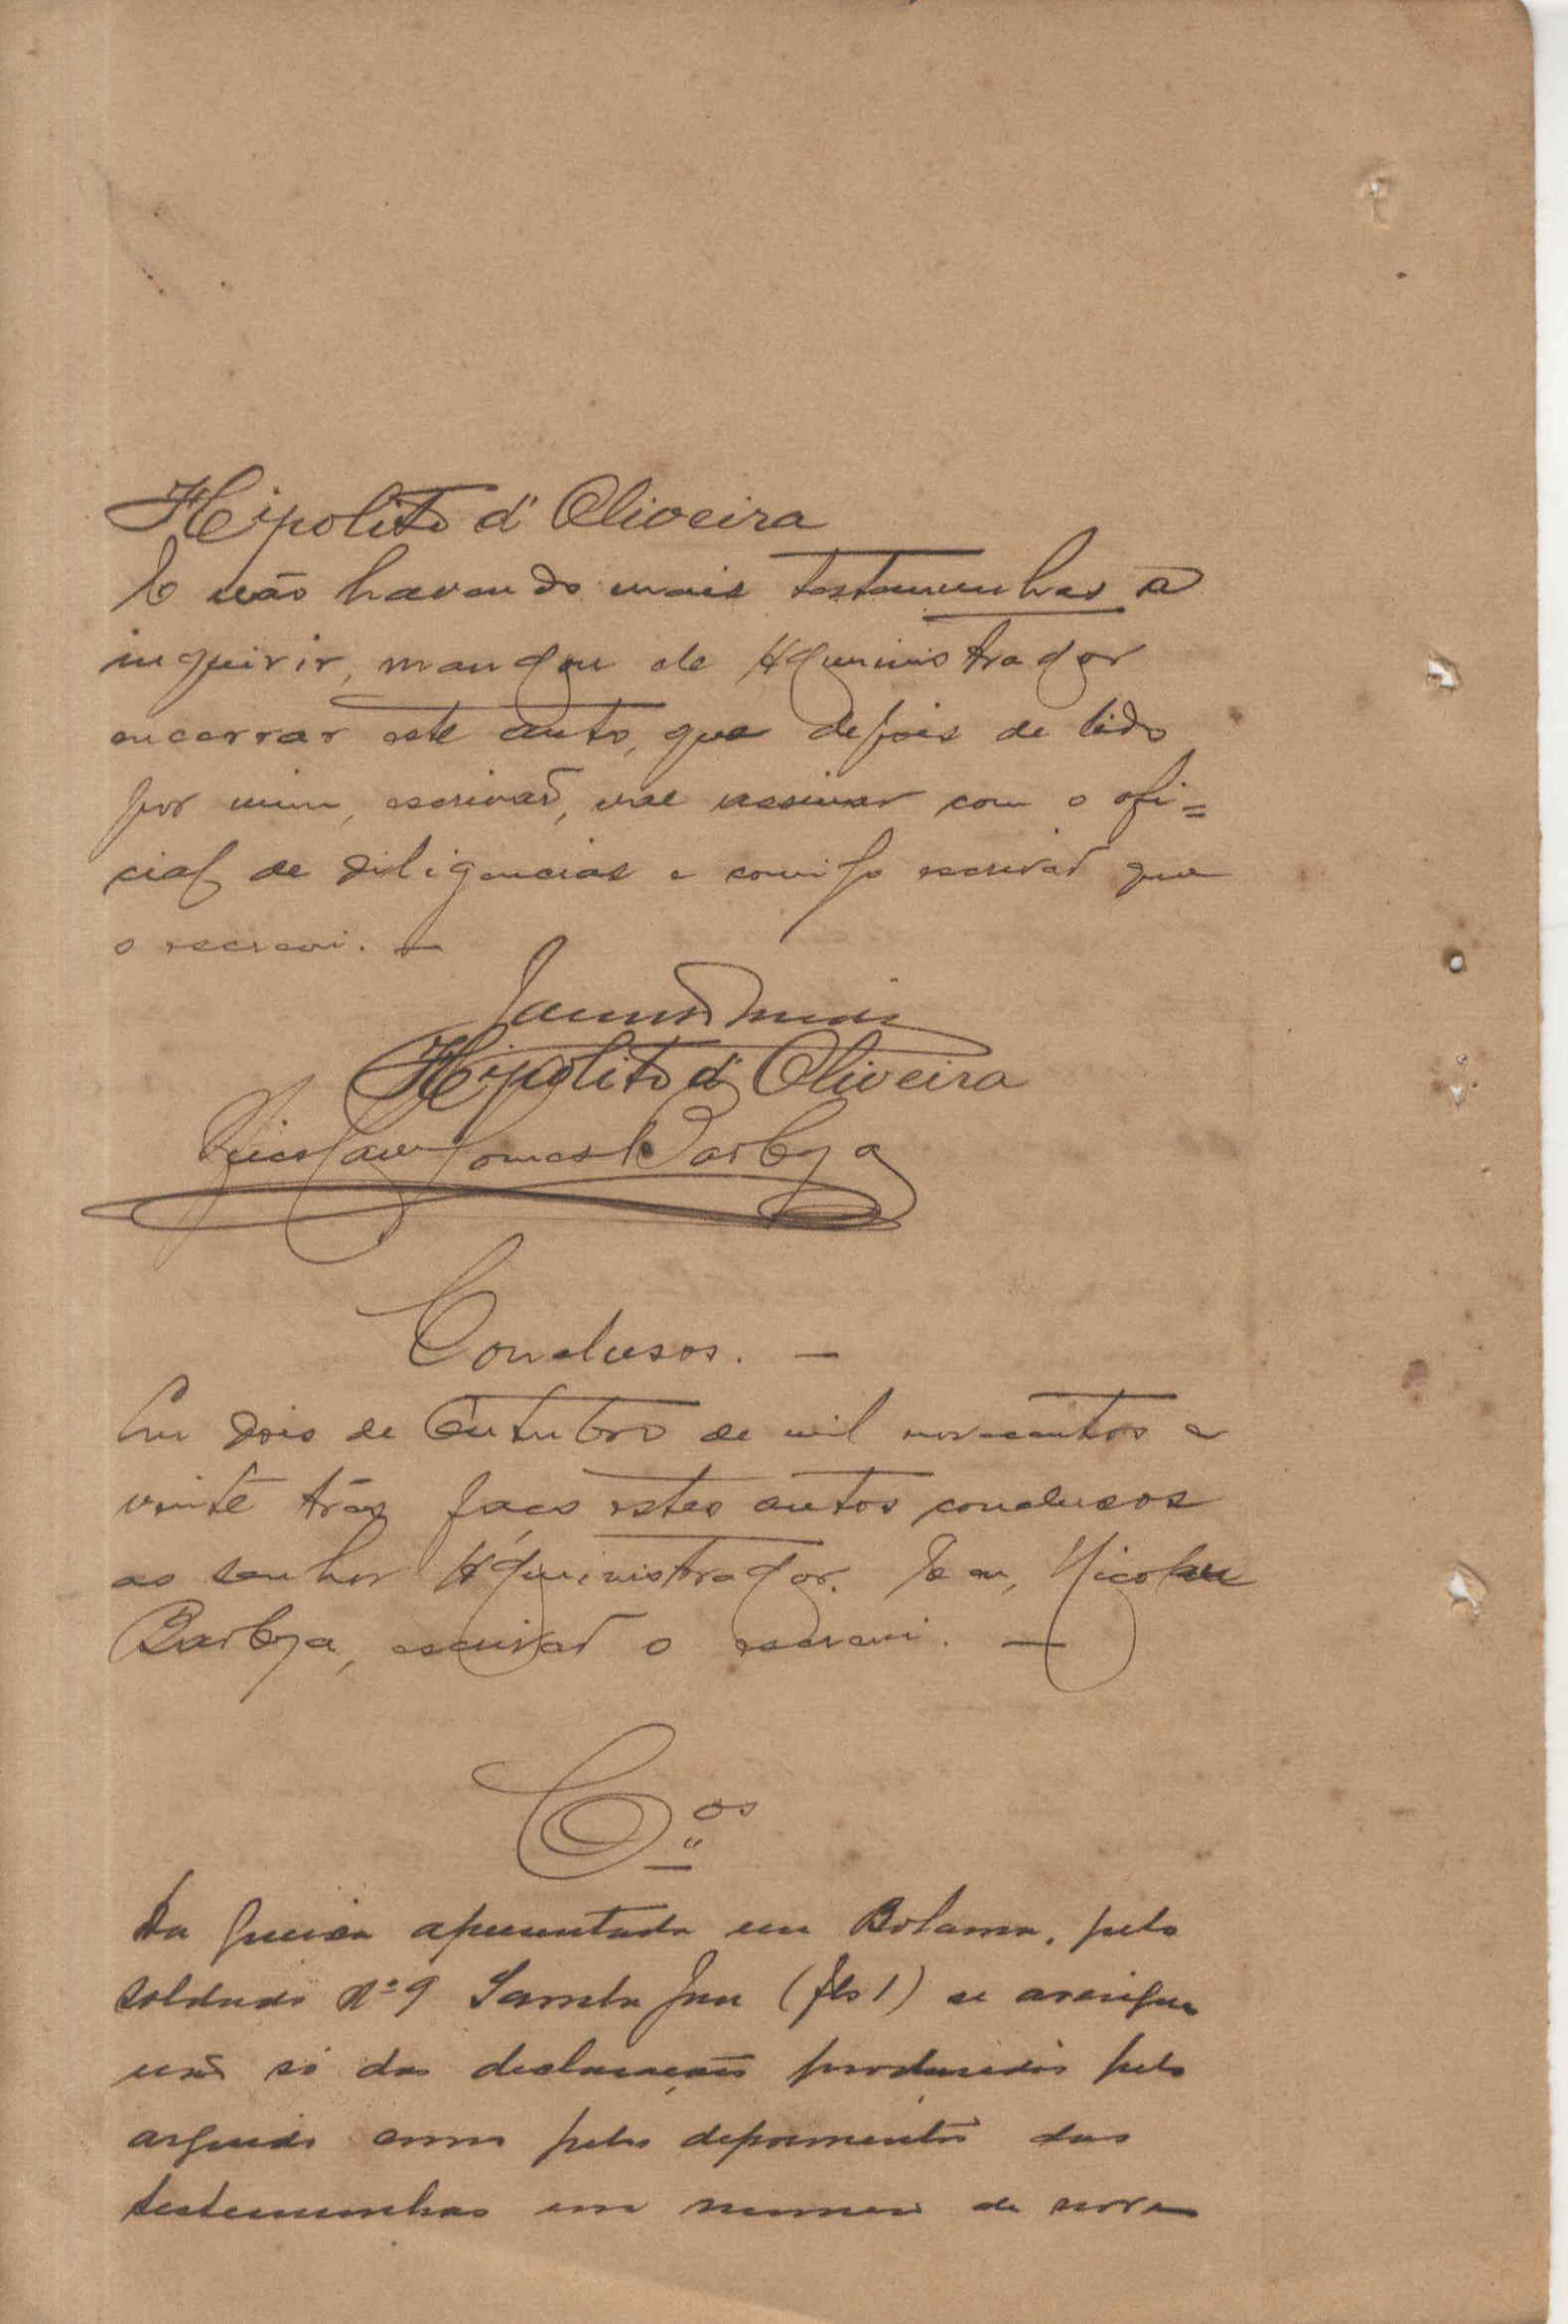 Hipolito d'Oliveira
E não havendo mais testemunhas a
inquirir, mandou ele Administrador
encerrar este auto, que depois de lido
por mim, escrivão, vae assinar com o ofi=
cial de diligencias e comigo escrivão que
o escrevi. —
Hipolito d'Oliveira
Nicolau Gomes Barbosa
Conclusos. —
Em dois de Outubro de mil novecentos e
vinte trez faço estes autos conclusos
ao senhor Administrador. E eu, Nicolau
Barboza, escrivão o escrevi. —
C.os
Da queixa apresentada em Bolama, pelo
soldado Nº 9 Samba (fls 1) se averigua
não só das declarações produzidas pelo
arguido como pelos depoimentos das
testemunhas em numero de nove